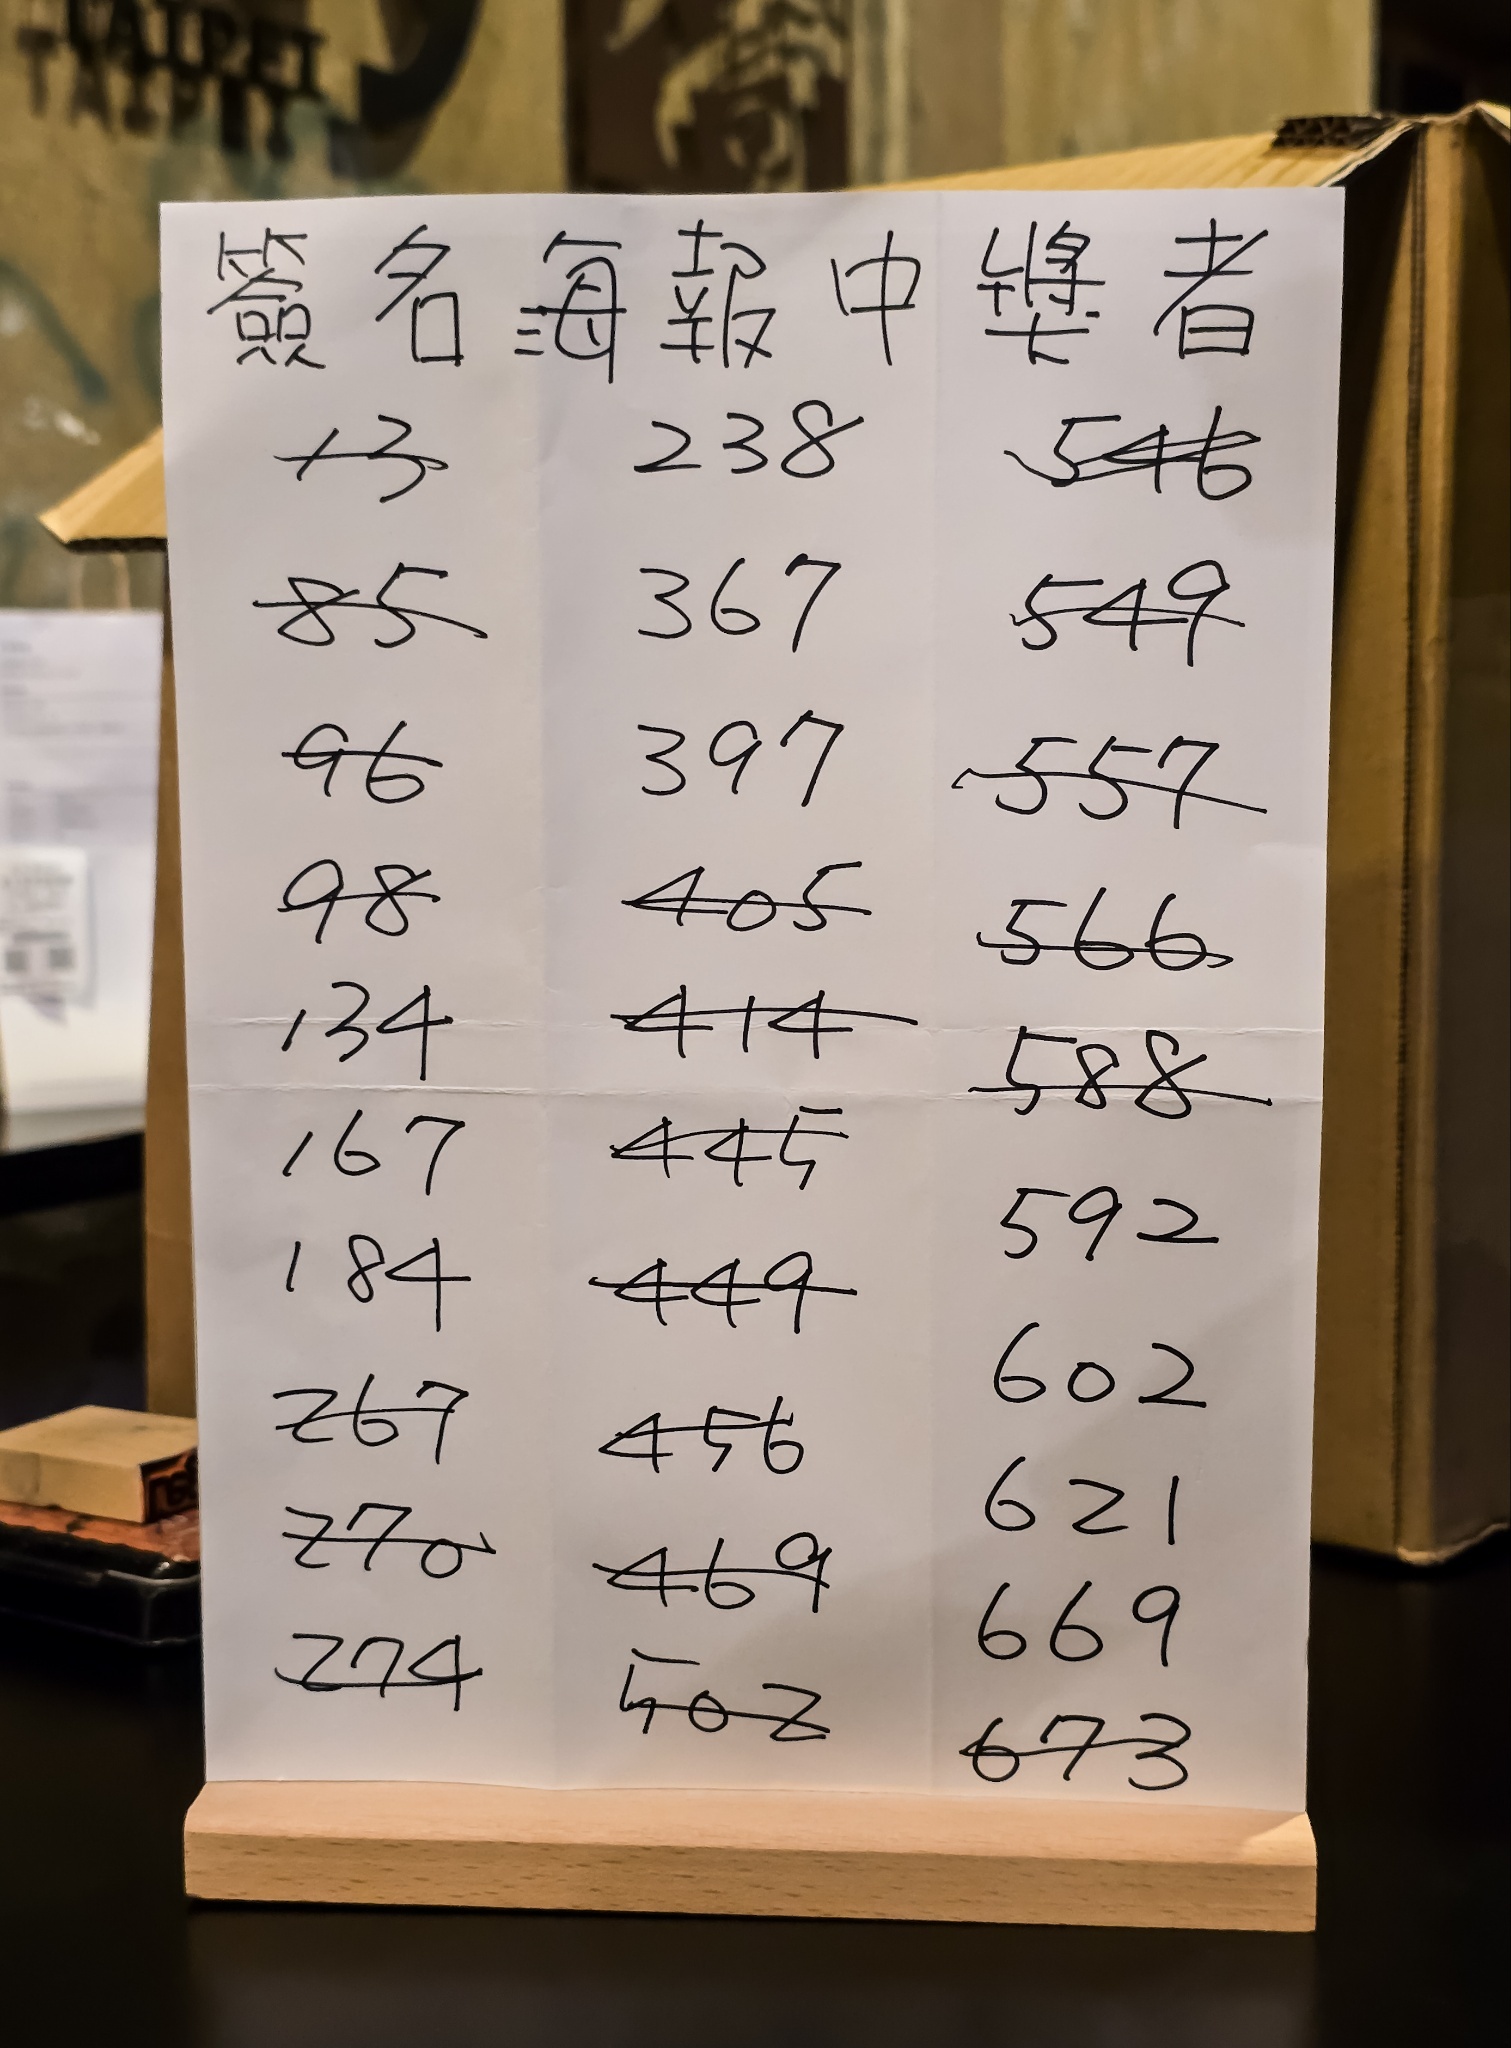 TAIPEI
TAIPEI
簽名海報中獎者
13 238 546
85 367 549
96 397 557
98 405 566
134 414 588
167 445 592
184 449 602
267 456 621
270 469 669
274 502 673